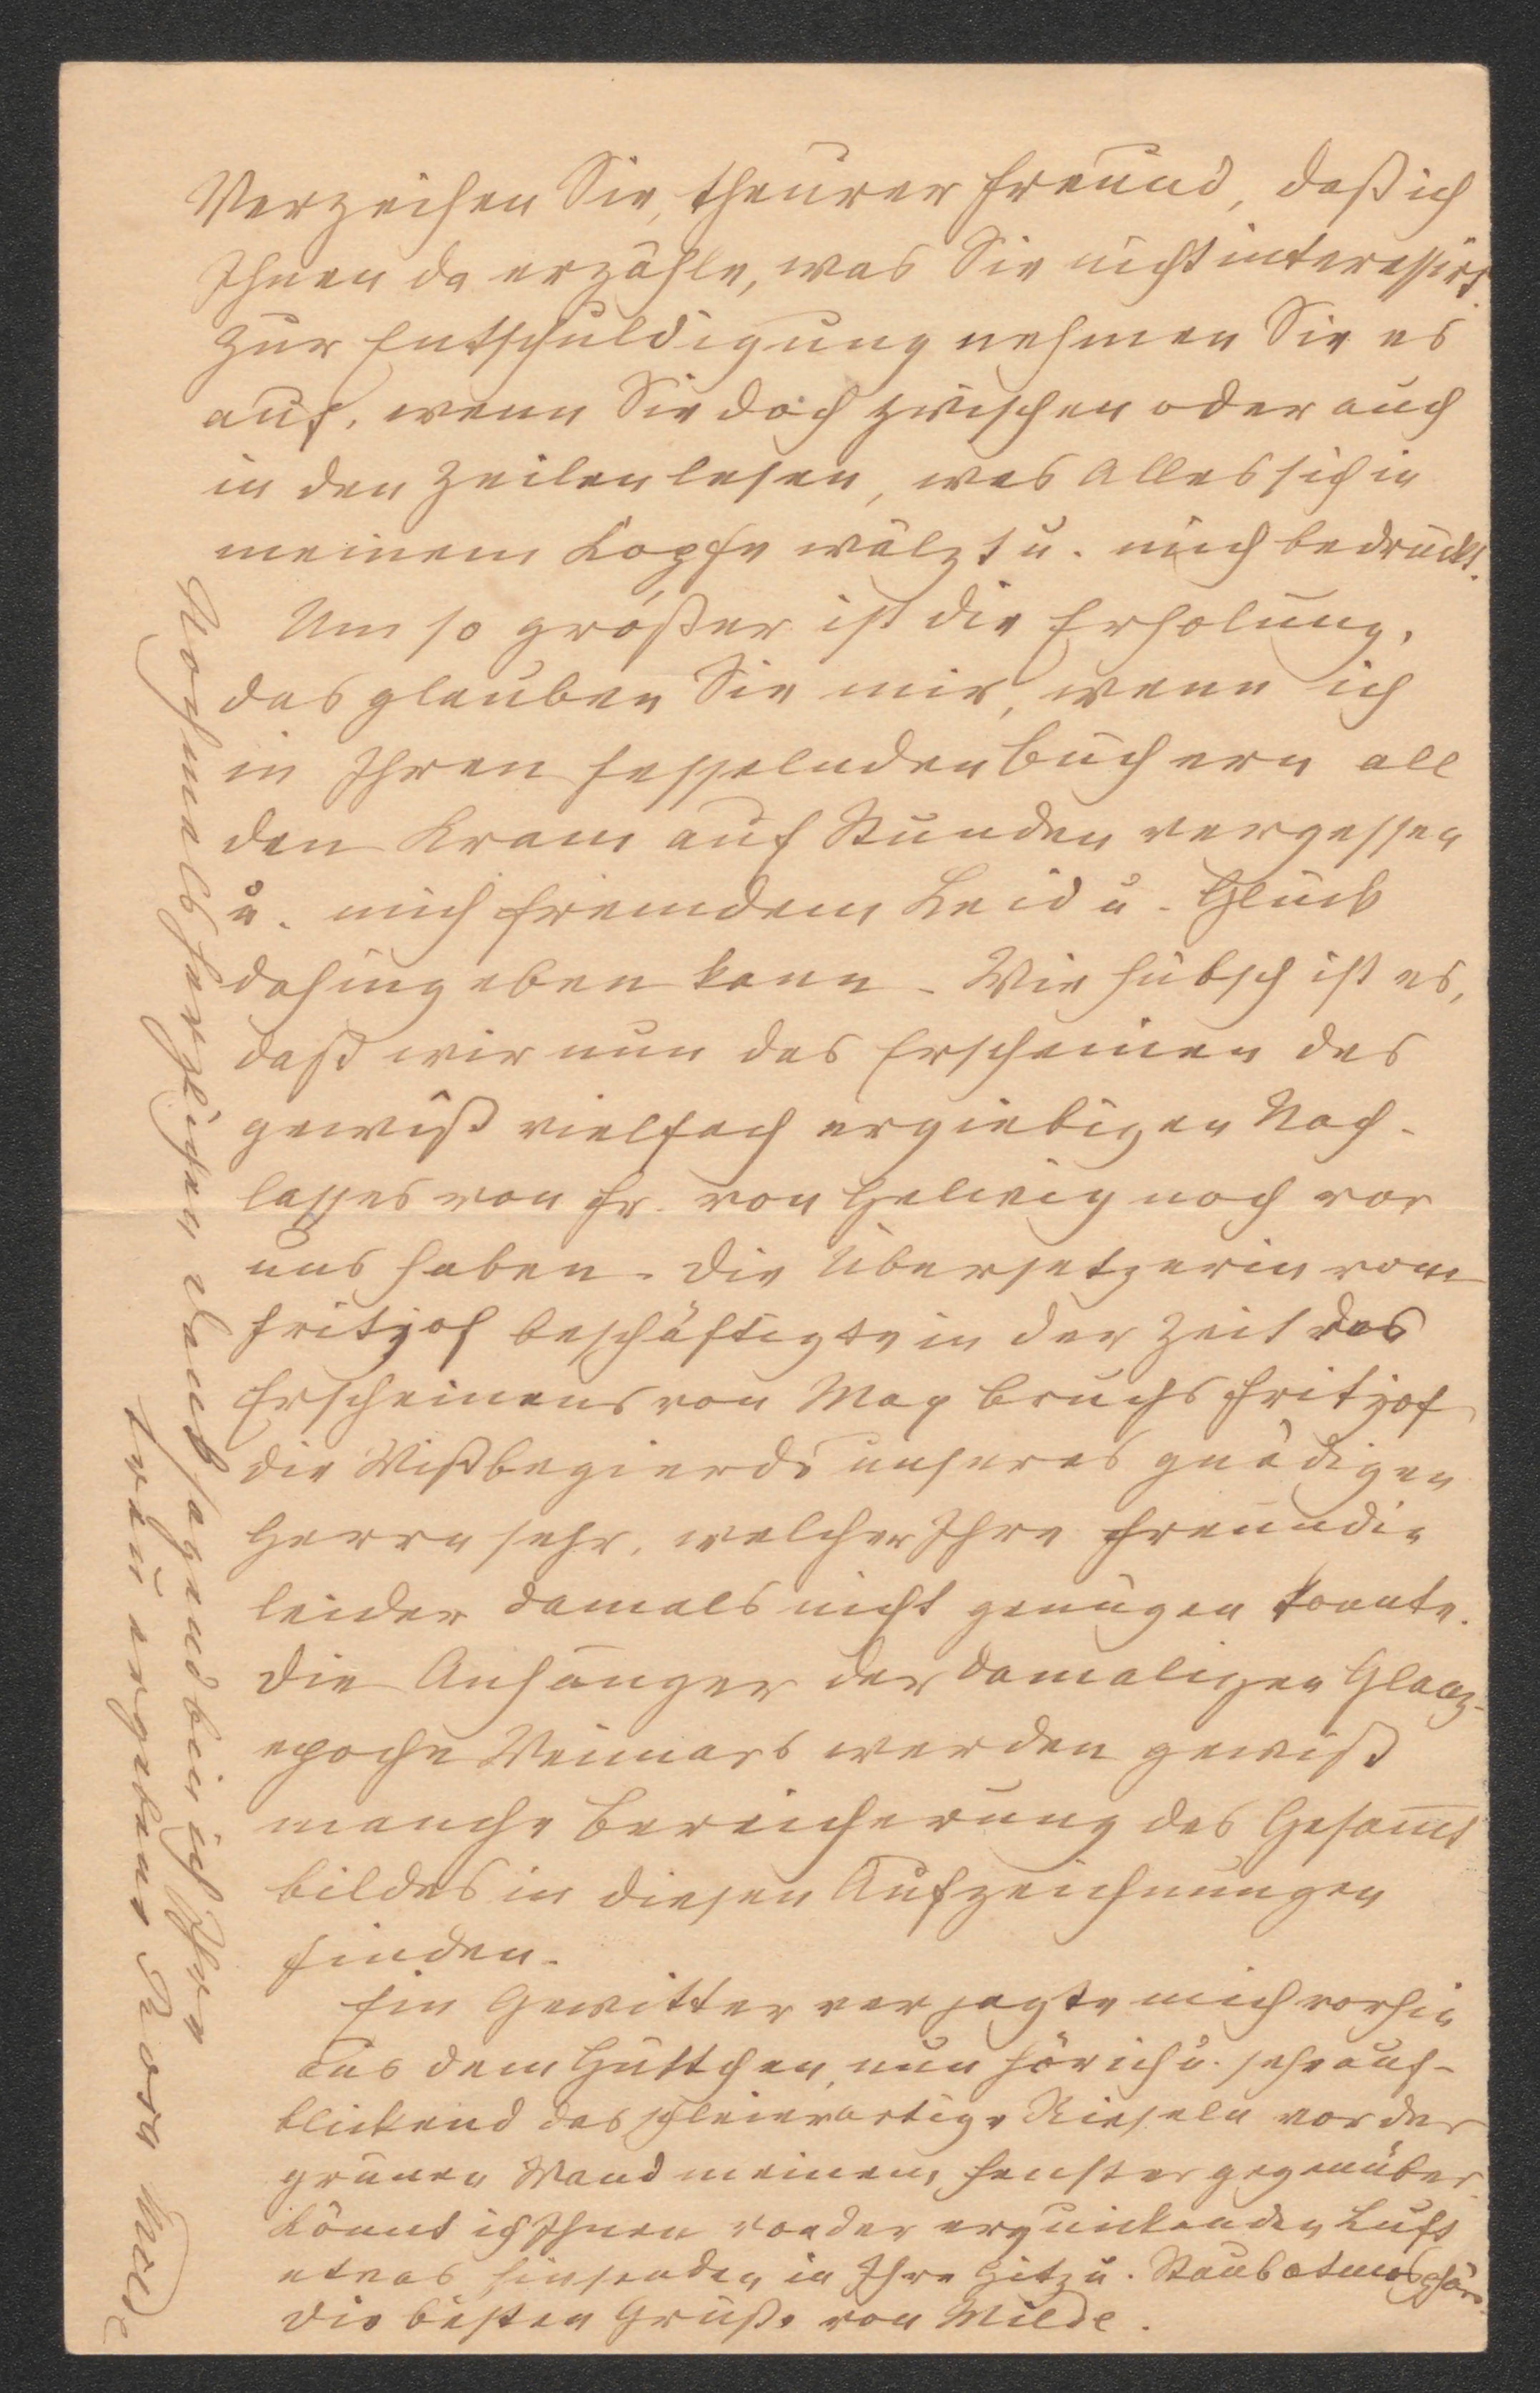 Verzeihen Sie, theurer Freund, daß ich
Ihnen da erzähle, was Sie nicht interessirt.
Zur Entschuldigung nehmen Sie es
auf, wenn Sie doch zwischen oder auch
in den Zeilen lesen, was Alles sich in
meinem Kopfe wälzt u. mich bedrückt.
Um so größer ist die Erholung,
das glauben Sie mir, wenn ich
in Ihren fesselnden Büchern all
den Kram auf Stunden vergessen
u. mich fremdem Leid u. Glück
dahingeben kann. Wie hübsch ist es,
daß wir nun das Erscheinen des
gewiß vielfach ergiebigen Nach-
lasses von Fr. von Helwig noch vor
uns haben. Die Übersetzerin vom
Fritjof beschäftigte in der Zeit des
Erscheinens von Max Bruchs Fritjof
die Wißbegierde unseres gnädigen
Herrn sehr, welcher Ihre Freundin
leider damals nicht genügen konnte.
Die Anhänger der damaligen Glanz-
epoche Weimars werden gewiß
manche Bereicherung des Gesam̅t
bildes in diesen Aufzeichnungen
finden.
Ein Gewitter verjagte mich vorhin
aus dem Hüttchen, nun hör ich u. sehe auf-
blickend das schleierartige Rieseln vor der
grünen Wand meinem Fenster gegenüber.
Könnt ich Ihnen von der erquickenden Luft
etwas hinsenden in Ihre Hitz u. Staubatmosphäre.
Die besten Grüße von Milde.
Nochmals herzlichen Dank sagend bin ich Ihre
treu ergebene Rosa Milde